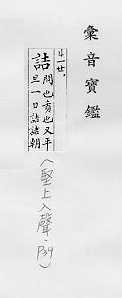 彙音寶鑑
ㄐ一ㄝ.
詰 問也責也又平
旦一日詰詰朝
(堅上入聲.P39)